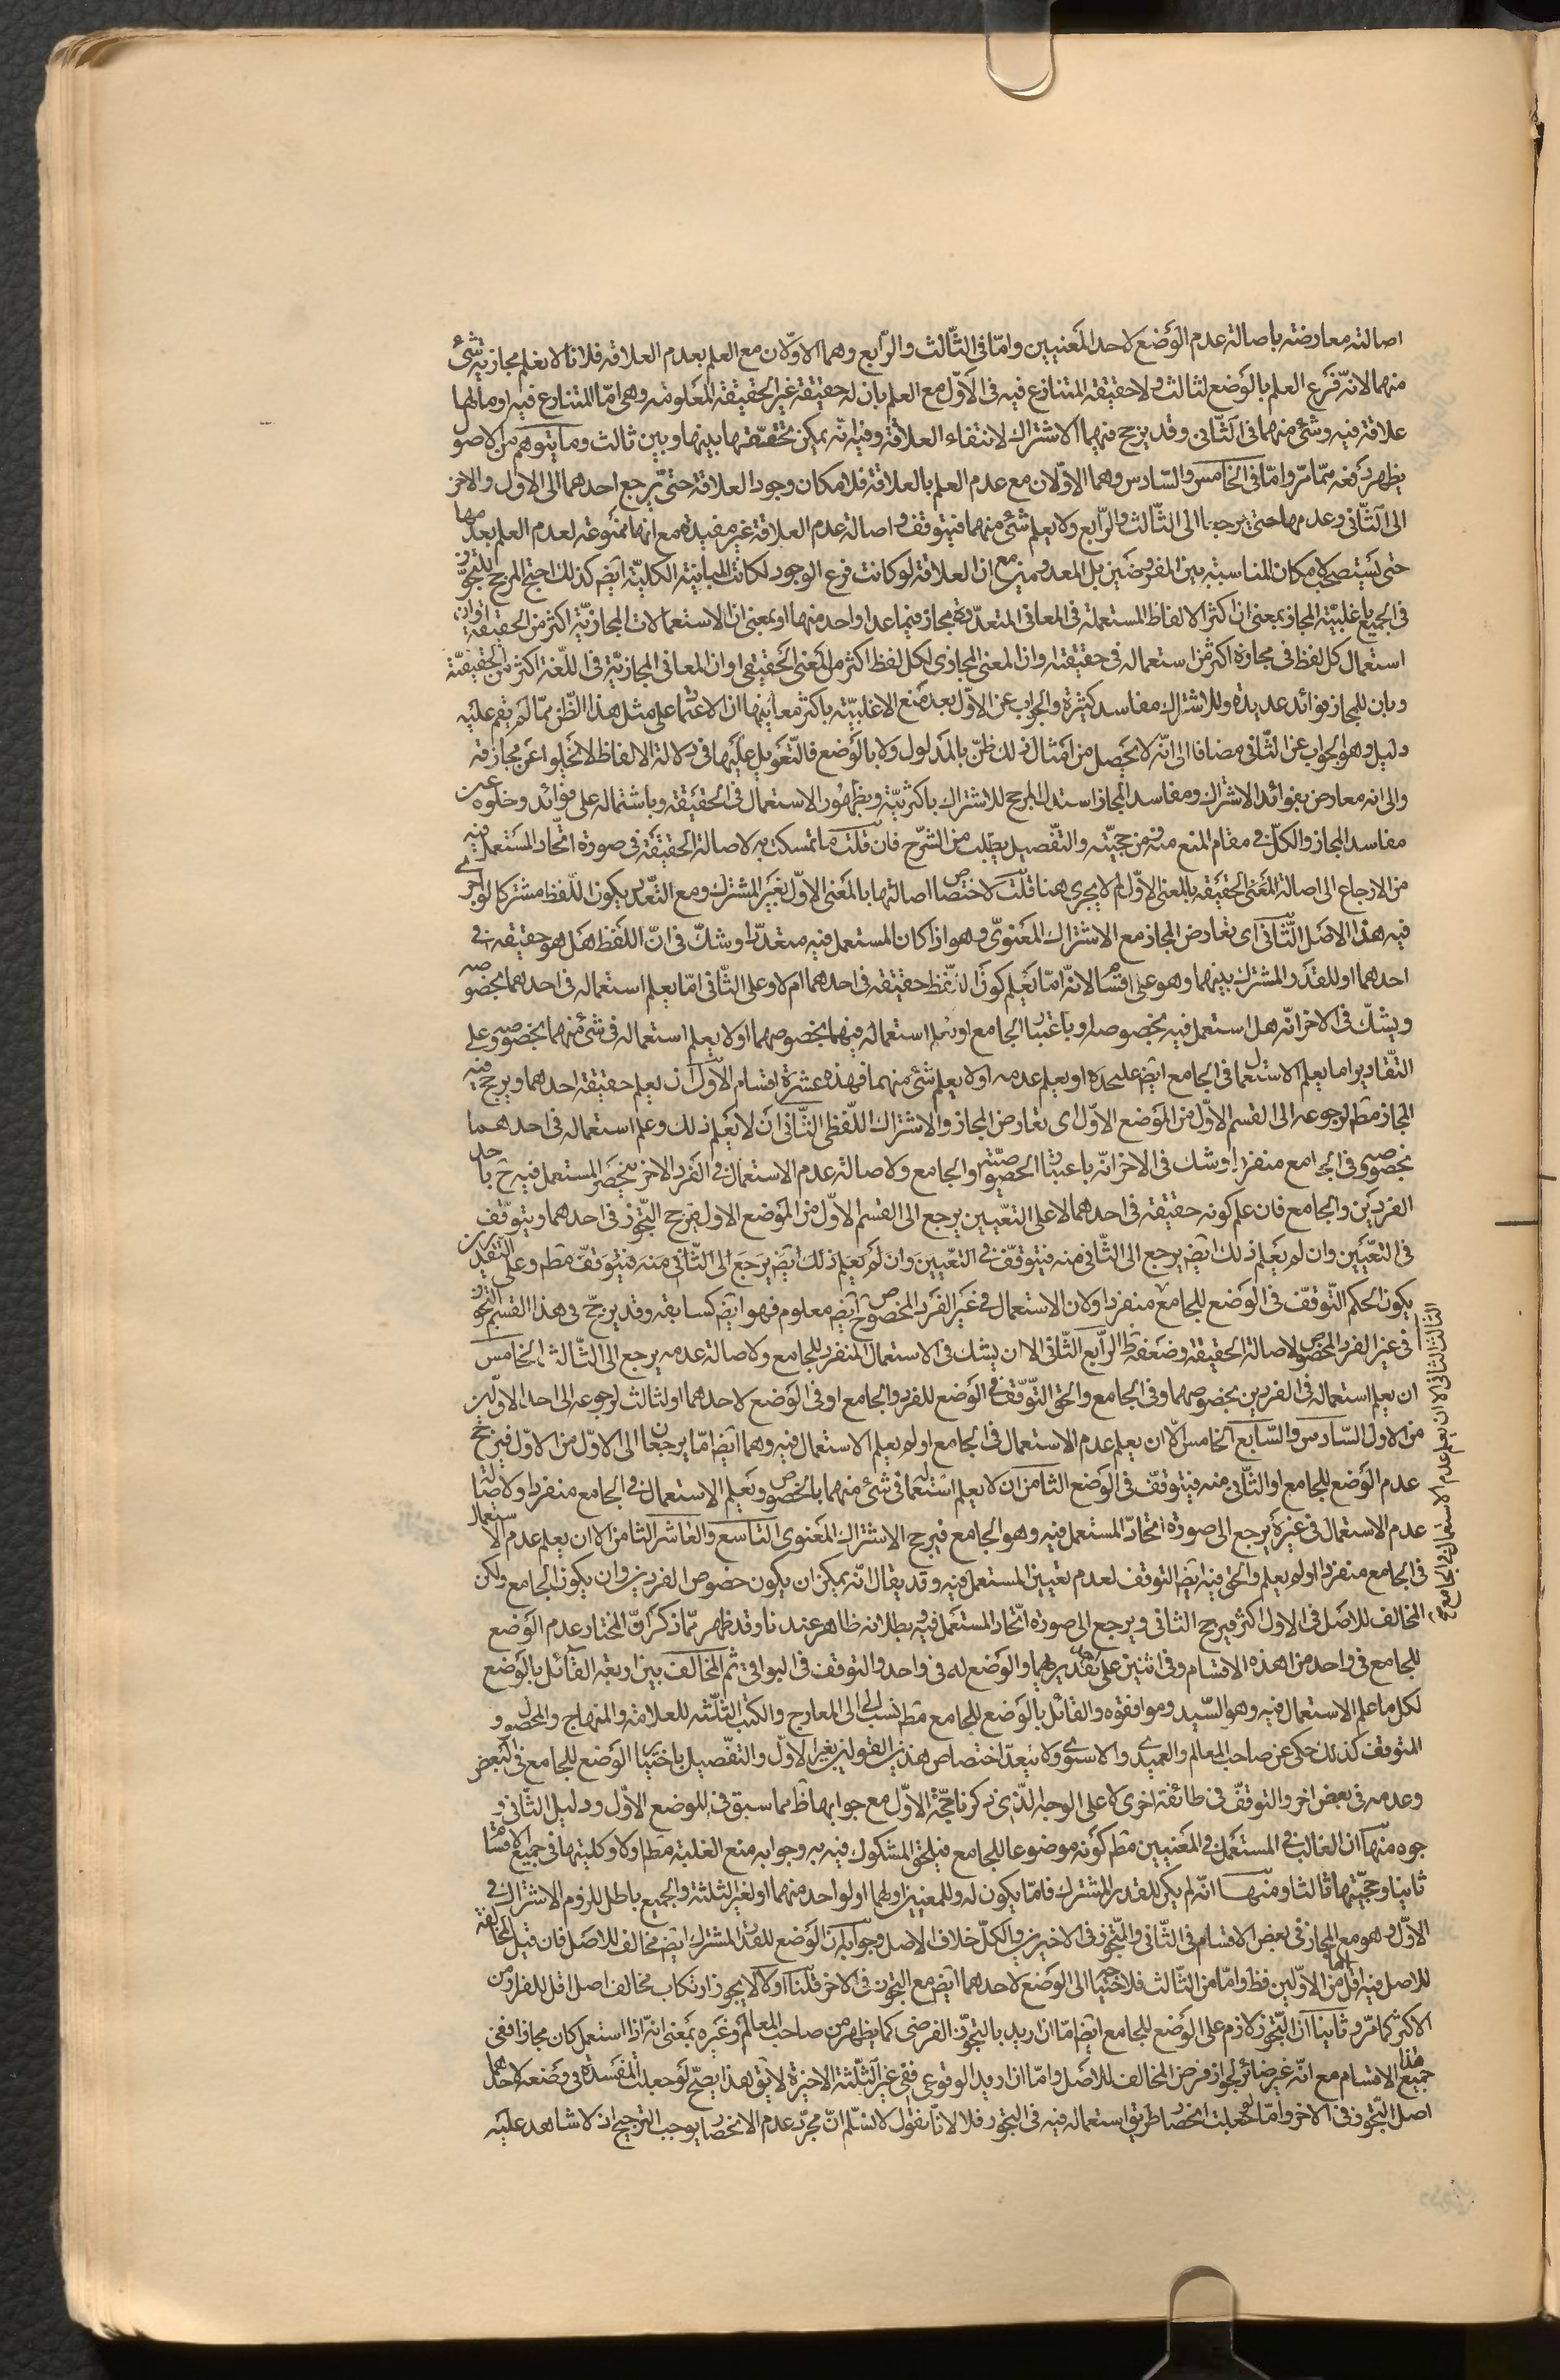 اصالته معارضته باصالة عدم الوضع لاحد المعنيين وامّا فى الثّالث والرّابع وهما الاوّلان مع العلم بعدم العلاقة فلانا لا نعلم مجازيّة شئ
منهما لانّه فرع العلم بالوضع لثالث ولا حقيقة المتنازع فيه فى الاوّل مع العلم بان له حقيقة غير الحقيقة المعلومة وهى امّا المتنازع فيه او ما لها
علاقة فيه وشئ منهما فى الثّانى وقد يرجح فيهما الاشتراك لانتفاء العلاقة وفيه انّه يمكن تحققها بينها وبين ثالث وما يتوهم من الاصو
يظهر دفعه ممّا مرّ وامّا فى الخامس والسّادس وهما الاوّلان مع عدم العلم بالعلاقة فلامكان وجود العلاقة حتّى يرجع احدهما الى الاول والاخر
الى الثّانى وعدمها حتى يرجعا الى الثّالث والرّابع ولا يعلم شئ منهما فيتوقف واصالة عدم العلاقة غير مفيدة مع انها ممنوعة لعدم العلم بعدمها
حتى يستصحب لامكان المناسبة بين المفروضين بل المعدومين مع ان العلاقة لو كانت فرع الوجود لكانت المباينة الكلية ايضً كذلك احتج المرجح للتجوّز
فى الجميع باغلبيّة المجاز بمعنى ان اكثر الالفاظ المستعملة فى المعانى المتعدّدة مجاز فيما عدا واحد منها او بمعنى ان الاستعمالات المجازيّة اكثر من الحقيقة او ان
استعمال كل لفظ فى مجازه اكثر من استعماله فى حقيقته وان المعنى المجازى لكل لفظ اكثر من المعنى الحقيقى او ان المعانى المجازيّة فى اللّغة اكثر من الحقيقيّة
وبان للمجاز فوائد عديدة وللاشتراك مفاسد كثيرة والجواب عن الاوّل بعد منع الاغلبيّة باكثر معاينها ان الاعتماد على مثل هذا الظّن ممّا لم يقم عليه
دليل وهو الجواب عن الثّانى مضافا الى انّه لا يحصل من امثال ذلك ظنّ بالمدلول ولا بالوضع فالتّعويل عليها فى دلالة الالفاظ لا تخلوا عن مجازفة
والى انه معارض بفوائد الاشتراك ومفاسد المجاز استدل المرجح للاشتراك باكثريّته وبظهور الاستعمال فى الحقيقة وباشتماله على فوائد وخلوه عن
مفاسد المجاز والكلّ فى مقام المنع منه من حجيّته والتّفصيل يطلب من الشّرح فان قلت ما تمسكت به لاصالة الحقيقة فى صورة اتّحاد المستعمل فيه
من الارجاع الى اصالة المعنى الحقيقة بالمعنى الاوّل لم لا يجرى هنا قلت لاختصاص اصالتها بالمعنى الاوّل بغير المشترك ومع التّعدد يكون اللّفظ مشتركا لو اجرى
فيه هذا الاصل الثّانى اى تعارض المجاز مع الاشتراك المعنوىّ وهو اذا كان المستعمل فيه متعدّدا وشكّ فى انّ اللفظ هل هو حقيقة فى
احدهما او للقدر المشترك بينهما وهو على اقسام لانّه امّا يعلم كون اللّفظ حقيقة فى احدهما ام لا وعلى الثّانى امّا يعلم استعماله فى احدهما بخصوصه
ويشكّ فى الاخر انّه هل استعمل فيه بخصوصه او باعتبار الجامع او يعلم استعماله فيهما بخصوصهما او لا يعلم استعماله فى شئ منهما بخصوصه وعلى
التّقادير اما يعلم الاستعمال فى الجامع ايضً عليحده او يعلم عدمه او لا يعلم شئ منهما فهذه عشرة اقسام الاوّل ان يعلم حقيقة احدهما ويرجح فيه
المجاز مطً لرجوعه الى القسم الاوّل من الموضع الاوّل اى تعارض المجاز والاشتراك اللّفظى الثّانى ان لا يعلم ذلك وعلم استعماله فى احدهما
بخصوصه وفى الجامع منفردا وشك فى الاخر انّه باعتبار الخصوصيّة او الجامع ولاصالة عدم الاستعمال فى الفرد الاخر ينحصر المستعمل فيه ح باحد
الفردين والجامع فان علم كونه حقيقة فى احدهما لا على التعيين يرجع الى القسم الاوّل من الموضع الاول فيرجح التّجوّز فى احدهما ويتوقف
فى التّعيين وان لم يعلم ذلك ايضً يرجع الى الثّانى منه فيتوقّف فى التعيين وان لم يعلم ذلك ايضً يرجع الى الثّانى منه فيتوقّف مطً وعلى التقديرين
يكون الحكم التّوقف فى الوضع للجامع منفردا ولان الاستعمال فى غير الفرد المخصوص ح ايضً معلوم فهو ايضً كسابقه وقد يرجّح فى هذا القسم التجوّز
فى غير الفرد المخصوص لاصالة الحقيقة وضعفه ظً الرّابع الثّانى الا ان يشك فى الاستعمال المنفرد للجامع ولاصالة عدمه يرجع الى الثّالث الخامس
ان يعلم استعماله فى الفردين بخصوصهما وفى الجامع والحق التّوقّف فى الوضع للفرد والجامع او فى الوضع لاحدهما او لثالث لرجوعه الى احد الاوّلين
من الاول السّادس والسّابع الخامس الّا ان يعلم عدم الاستعمال فى الجامع او لم يعلم الاستعمال فيه وهما ايضً امّا يرجعان الى الاوّل من الاوّل فيرجح
عدم الوضع للجامع او الثّانى منه فيتوقّف فى الوضع الثامن ان لا يعلم استعماله فى شئ منهما بالخصوص ويعلم الاستعمال فى الجامع منفردا ولاصالة
عدم الاستعمال فى غيره يرجع الى صورة اتّحاد المستعمل فيه وهو الجامع فيرجح الاشتراك المعنوى التاسع والعاشر الثامن الا ان يعلم عدم الاستعمال
فى الجامع منفردا او لم يعلم والحق فيه ايضً التوقف لعدم تعيين المستعمل فيه وقد يقال انّه يمكن ان يكون خصوص الفردين وان يكون الجامع ولكن
المخالف للاصل فى الاول اكثر فيرجح الثانى ويرجع الى صورة اتّحاد المستعمل فيه وبطلانه ظاهر عندنا وقد ظهر ممّا ذكر انّ المختار عدم الوضع
للجامع فى واحد من هذه الاقسام وفى اثنين على تقديريهما والوضع له فى واحد والتوقف فى البواقى ثم المخالف بين اربعة القائل بالوضع
لكل ما علم الاستعمال فيه وهو السّيد وموافقوه والقائل بالوضع للجامع مطً نسب الى المعارج والكتب الثلثة للعلامة والمنهاج والمحصول و
المتوقف كذلك حكى عن صاحب المعالم والعميدى والاسنوى ولا يبعد اختصاص هذين القولين بغير الاوّل والتفصيل باختيار الوضع للجامع فى البعض
وعدمه فى بعض اخر والتوقّف فى طائفة اخرى لا على الوجه الّذى ذكرنا حجّة الاوّل مع جوابها ظً مما سبق فى الموضع الاوّل ودليل الثّانى و
جوه منها ان الغالب فى المستعمل فى المعنيين مطً كونه موضوعا للجامع فيلحق المشكوك فيه به وجوابه منع الغلبة مطً اولا وكليتها فى جميع الاقسام
ثانيا وحجيّتها ثالثا ومنها انّه لم يكن للقدر المشترك فامّا يكون له وللمعنيين او لهما او لواحد منهما او لغير الثلثة والجميع باطل للزوم الاشتراك فى
الاوّل وهو مع المجاز فى بعض الاقسام فى الثّانى والتّجوز فى الاخيرين والكلّ خلاف الاصل وجوابه ان الوضع للقدر المشترك ايضً مخالف للاصل فان قيل المخالفة
للاصل فيه اقل من الاوّلين فظً وامّا من الثّالث فلاحتياجه الى الوضع لاحدهما ايضً مع التجوز فى الاخر قلنا اولا لا يجوز ارتكاب مخالف اصل اقل للفرار من
الاكثر كما مرّ وثانيا ان التّجوز لازم على الوضع للجامع ايضً امّا ان اريد بالتجوّز الفرضى كما يظهر من صاحب المعالم وغيره بمعنى انّه اذا استعمل كان مجازا ففى
جميع الاقسام مع انّه غير ضائر لجواز فرض المخالف للاصل وامّا ان اريد الوقوعى ففى غير الثّلثة الاخيرة لا يق هذا يصحّ لو جعلت المفسدة فى وضعه لاحدهما
اصل التّجوز فى الاخر وامّا لو جعلت انحصار طريق استعماله فيه فى التجوز فلا لانّا نقول لا نسلّم انّ مجرّد عدم الانحصار يوجب الترجيح اذ لا شاهد عليه
الثالث الثانى الا ان يعلم عدم الاستعمال فى الجامع